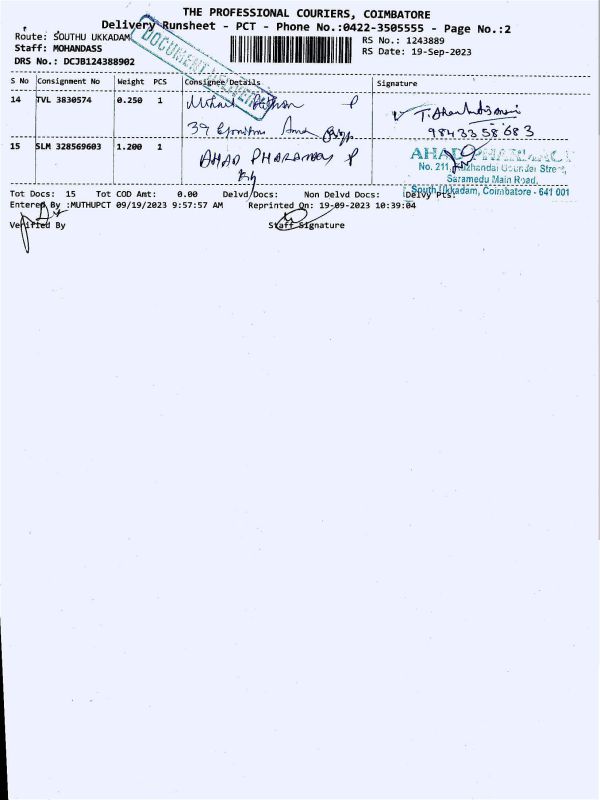 THE PROFESSIONAL COURIERS, COIMBATORE
Delivery Runsheet - PCT - Phone No.:0422-3505555 - Page No.:2
Route: SOUTHU UKKADAM
Staff: MOHANDASS
DRS No.: DCJB124388902
RS No.: 1243889
RS Date: 19-Sep-2023
DOCUMENT DELIVERED
S No Consignment No Weight PCS Consignee Details Signature
14 TVL 3830574 0.250 1
39
9843358683
15 SLM 328569603 1.200 1 AHAD PHARAMACY P
AHAD PHARMACY
No. 211, Gounder Street,
Saramedu Main Road,
South Ukkadam, Coimbatore - 641 001
Tot Docs: 15 Tot COD Amt: 0.00 Delvd Docs: Non Delvd Docs: Delvy Pts:
Entered By :MUTHUPCT 09/19/2023 9:57:57 AM Reprinted On: 19-09-2023 10:39:04
Verified By Staff Signature